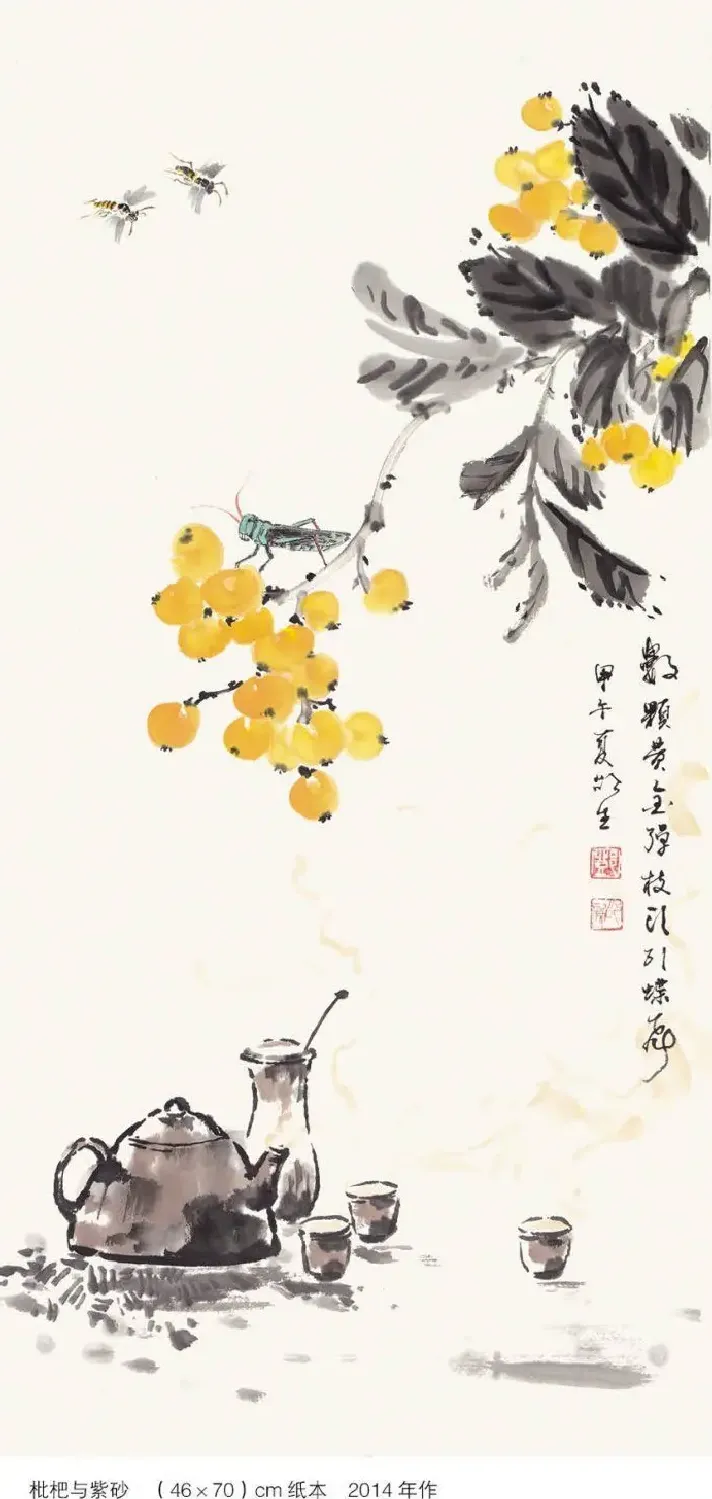 數顆黄金彈枝頭引蝶
甲午夏
枇杷与紫砂 （46×70）cm 纸本 2014 年作